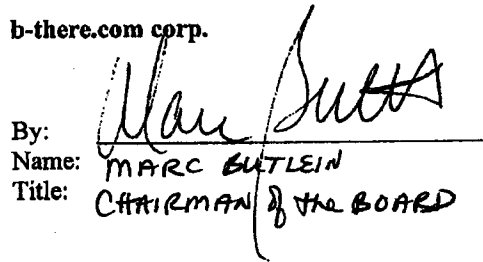 b-there.com corp.
By: Marc Butt
Name: MARC BUTLEIN
Title: CHAIRMAN of the BOARD